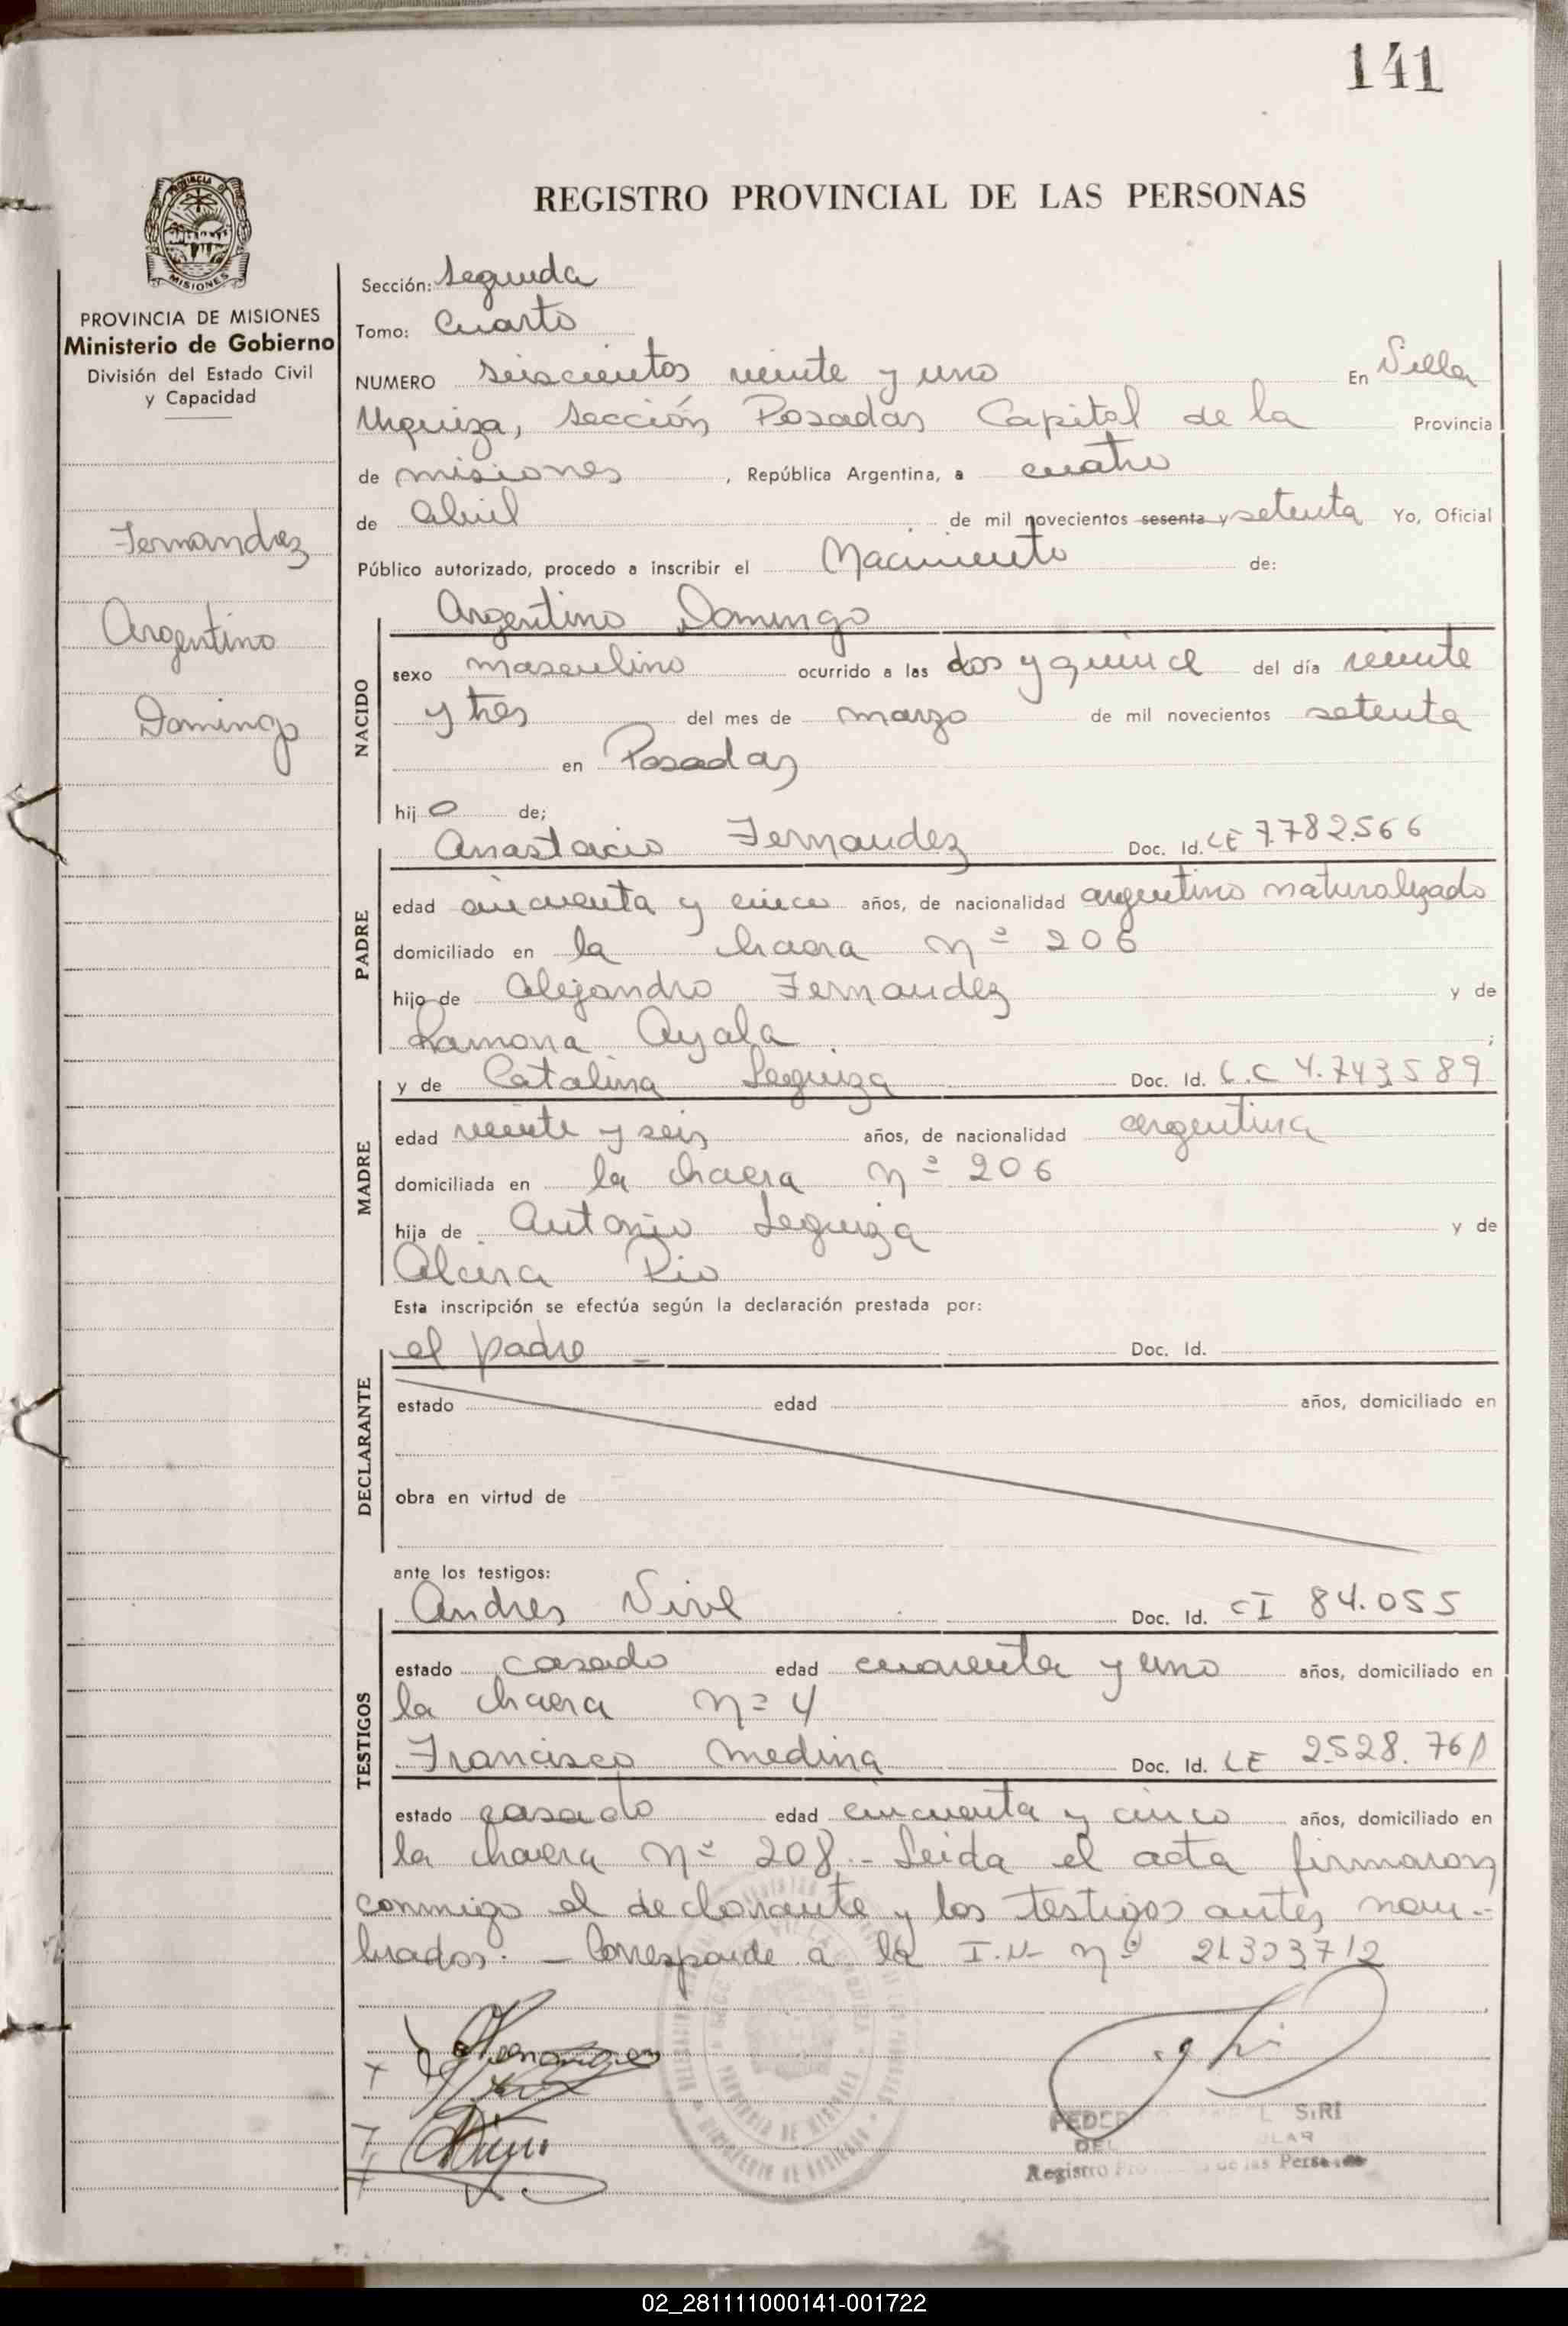 141
REGISTRO PROVINCIAL DE LAS PERSONAS
PROVINCIA DE
MISIONES
PROVINCIA DE MISIONES
Ministerio de Gobierno
División del Estado Civil
y Capacidad
Fernandez
Argentino
Domingo
Sección: Segunda
Tomo: Cuarto
NUMERO Seiscientos veinte y uno En Villa
Urquiza, Sección Posadas Capital de la Provincia
de misiones, República Argentina, a cuatro
de Abril de mil novecientos sesenta y setenta Yo, Oficial
Público autorizado, procedo a inscribir el Nacimiento de:
NACIDO
Argentino Domingo
sexo masculino ocurrido a las dos y quince del día veinte
y tres del mes de marzo de mil novecientos setenta
en Posadas
hijo de;
PADRE
Anastacio Fernandez Doc. Id. LE 7.782.566
edad cincuenta y cinco años, de nacionalidad argentino naturalizado
domiciliado en la chacra nº 206
hijo de Alejandro Fernandez y de
Ramona Ayala ;
MADRE
y de Catalina Leguiza Doc. Id. L.C 4.743.589
edad veinte y seis años, de nacionalidad argentina
domiciliada en la chacra nº 206
hija de Antonio Leguiza y de
Alcira Rio
Esta inscripción se efectúa según la declaración prestada por:
DECLARANTE
el padre — Doc. Id.
estado edad años, domiciliado en
obra en virtud de
ante los testigos:
TESTIGOS
Andres Doc. Id. CI 84.055
estado casado edad cuarenta y uno años, domiciliado en
la chacra nº 4
Francisco Medina Doc. Id. LE 2.528.761
estado casado edad cincuenta y cinco años, domiciliado en
la chacra nº 208.- Leida el acta firmaron
conmigo el declarante y los testigos antes nom-
brados. - Corresponde a la I.N- nº
PROVINCIA DE MISIONES
MINISTERIO DE GOBIERNO
SIRI
DEL
Registro de las
02_281111000141-001722